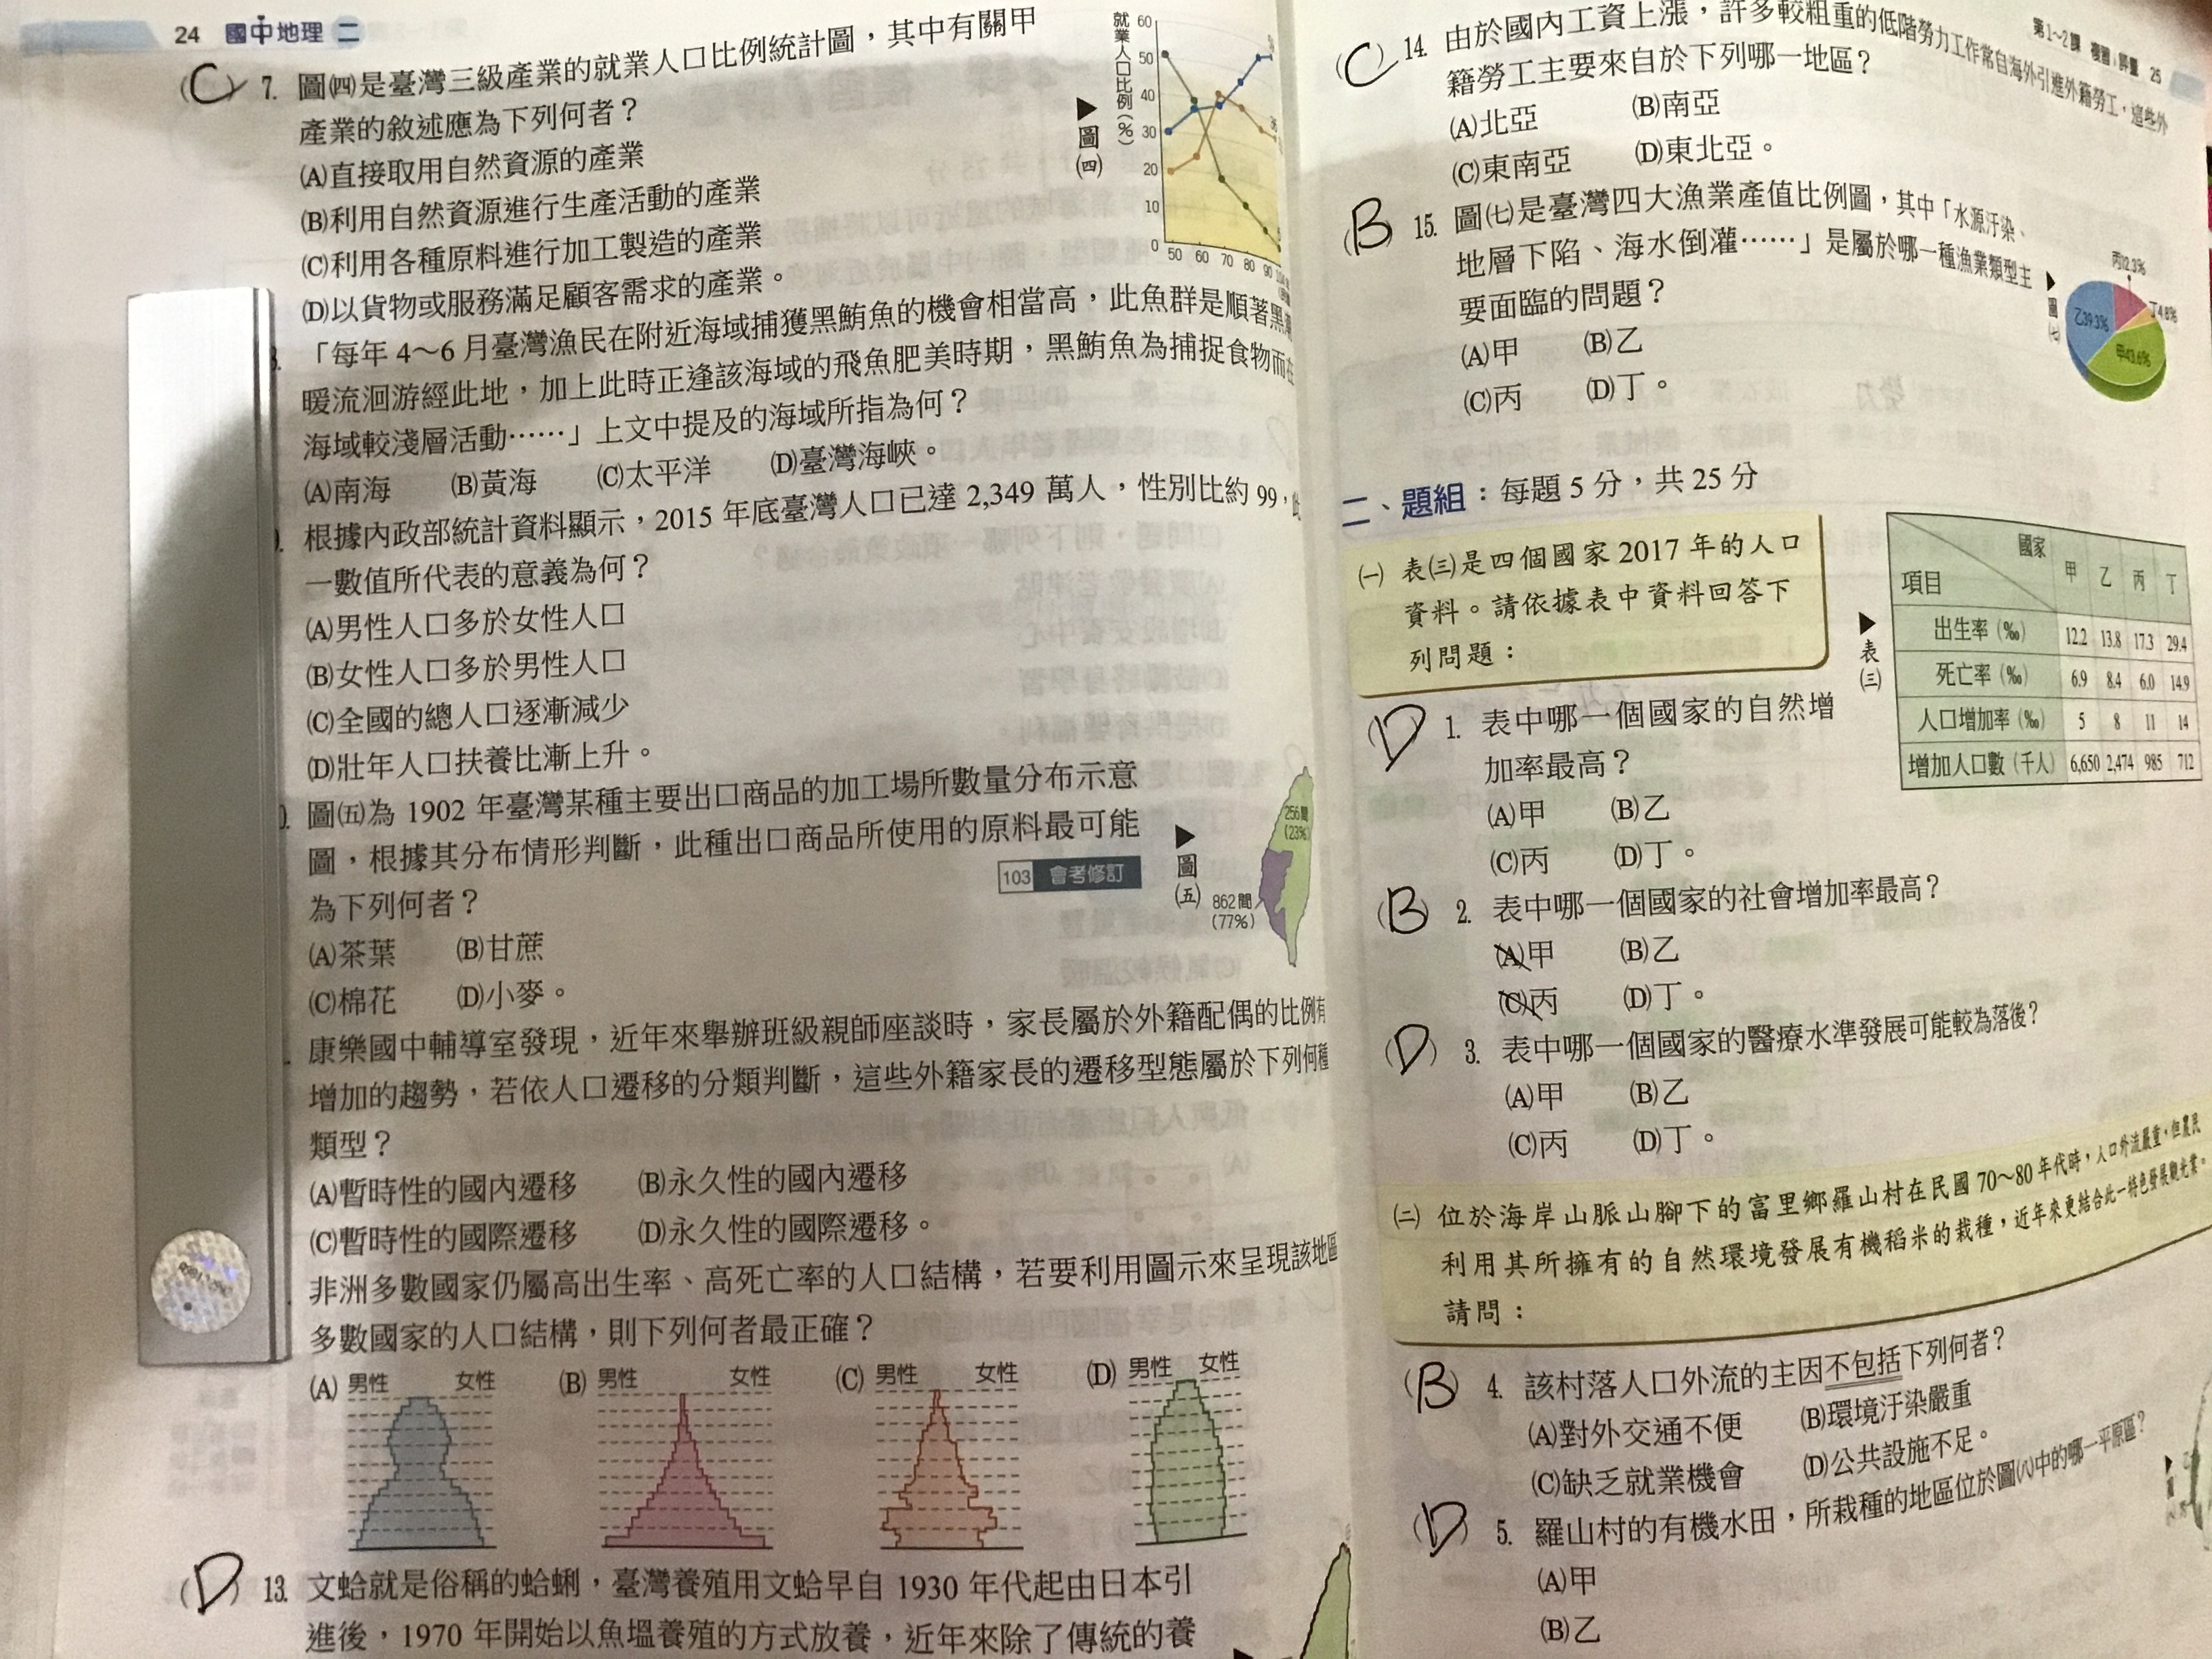 24 國中地理 二
(C) 7. 圖㈣是臺灣三級產業的就業人口比例統計圖，其中有關甲
產業的敘述應為下列何者？
(A)直接取用自然資源的產業
(B)利用自然資源進行生產活動的產業
(C)利用各種原料進行加工製造的產業
(D)以貨物或服務滿足顧客需求的產業。
就業人口比例(%)
60
50
40
30
20
10
0
50 60 70 80 90
▶圖㈣
「每年 4～6 月臺灣漁民在附近海域捕獲黑鮪魚的機會相當高，此魚群是順著黑
暖流洄游經此地，加上此時正逢該海域的飛魚肥美時期，黑鮪魚為捕捉食物而在
海域較淺層活動……」上文中提及的海域所指為何？
(A)南海 (B)黃海 (C)太平洋 (D)臺灣海峽。
根據內政部統計資料顯示，2015 年底臺灣人口已達 2,349 萬人，性別比約 99，此
一數值所代表的意義為何？
(A)男性人口多於女性人口
(B)女性人口多於男性人口
(C)全國的總人口逐漸減少
(D)壯年人口扶養比漸上升。
圖㈤為 1902 年臺灣某種主要出口商品的加工場所數量分布示意
圖，根據其分布情形判斷，此種出口商品所使用的原料最可能
為下列何者？
103 會考修訂
(A)茶葉 (B)甘蔗
(C)棉花 (D)小麥。
▶圖㈤
256間
(23%)
862間
(77%)
康樂國中輔導室發現，近年來舉辦班級親師座談時，家長屬於外籍配偶的比例有
增加的趨勢，若依人口遷移的分類判斷，這些外籍家長的遷移型態屬於下列何種
類型？
(A)暫時性的國內遷移 (B)永久性的國內遷移
(C)暫時性的國際遷移 (D)永久性的國際遷移。
非洲多數國家仍屬高出生率、高死亡率的人口結構，若要利用圖示來呈現該地區
多數國家的人口結構，則下列何者最正確？
(A) 男性 女性 (B) 男性 女性 (C) 男性 女性 (D) 男性 女性
(D) 13. 文蛤就是俗稱的蛤蜊，臺灣養殖用文蛤早自 1930 年代起由日本引
進後，1970 年開始以魚塭養殖的方式放養，近年來除了傳統的養
第1～2課 複習 評量 25
(C) 14. 由於國內工資上漲，許多較粗重的低階勞力工作常自海外引進外籍勞工，這些外
籍勞工主要來自於下列哪一地區？
(A)北亞 (B)南亞
(C)東南亞 (D)東北亞。
(B) 15. 圖㈦是臺灣四大漁業產值比例圖，其中「水源汙染、
地層下陷、海水倒灌……」是屬於哪一種漁業類型主
要面臨的問題？
(A)甲 (B)乙
(C)丙 (D)丁。
▶圖㈦
丙12.3%
丁4.8%
乙39.3%
甲43.6%
二、題組：每題 5 分，共 25 分
㈠ 表㈢是四個國家 2017 年的人口
資料。請依據表中資料回答下
列問題：
▶表㈢
國家
項目 甲 乙 丙 丁
出生率（‰） 12.2 13.8 17.3 29.4
死亡率（‰） 6.9 8.4 6.0 14.9
人口增加率（‰） 5 8 11 14
增加人口數（千人） 6,650 2,474 985 712
(D) 1. 表中哪一個國家的自然增
加率最高？
(A)甲 (B)乙
(C)丙 (D)丁。
(B) 2. 表中哪一個國家的社會增加率最高？
(A)甲 (B)乙
(C)丙 (D)丁。
(D) 3. 表中哪一個國家的醫療水準發展可能較為落後？
(A)甲 (B)乙
(C)丙 (D)丁。
㈡ 位於海岸山脈山腳下的富里鄉羅山村在民國 70～80 年代時，人口外流嚴重，但農民
利用其所擁有的自然環境發展有機稻米的栽種，近年來更結合此一特色發展觀光業。
請問：
(B) 4. 該村落人口外流的主因不包括下列何者？
(A)對外交通不便 (B)環境汙染嚴重
(C)缺乏就業機會 (D)公共設施不足。
(D) 5. 羅山村的有機水田，所栽種的地區位於圖㈧中的哪一平原區？
(A)甲
(B)乙